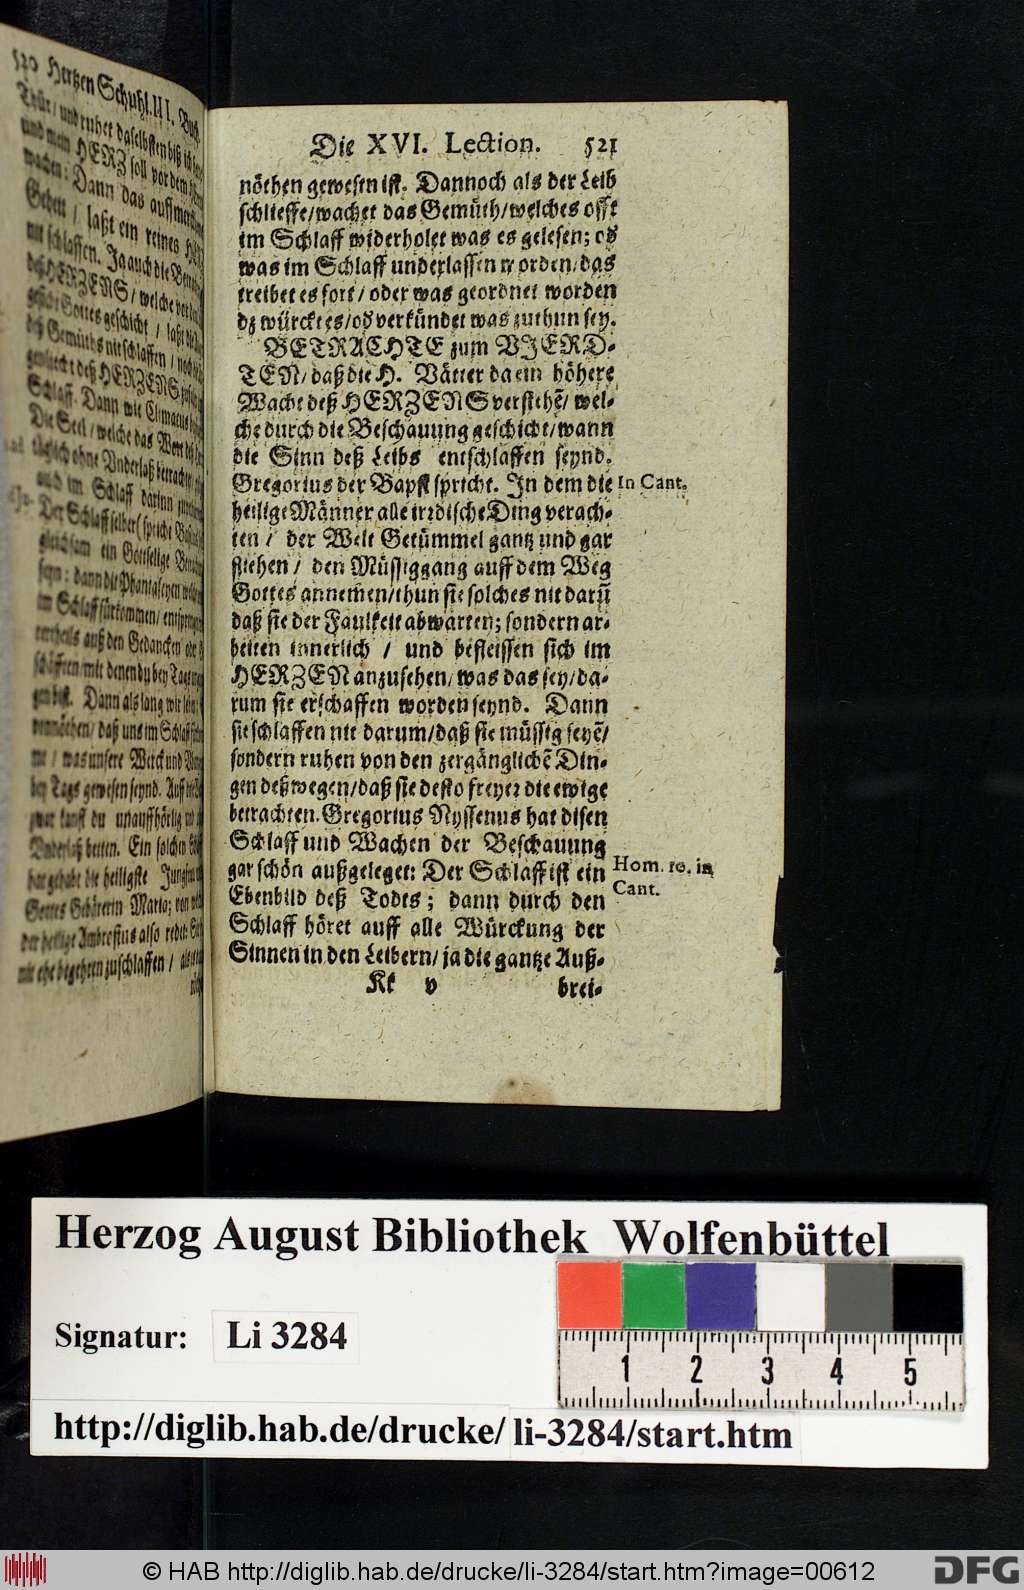 520 Hertzen Schuhl. III. Buch.
Thür / und ruhet daselbsten biß ich
und mein HERZ soll vor dem
wachen: Dann das auffmercksame
Gebett / laßt ein reines Hertz
nit schlaffen. Ja auch die
deß HERZENS / welche vor dem
gesicht Gottes geschicht / laßt die
deß Gemüths nit schlaffen / noch
deß HERZENS
Schlaff. Dann wie Climacus
Die Seel / welche das Wort deß
täglich ohne Underlaß betrachtet
auch im Schlaff darinn
Der Schlaff selber (spricht Basilius
gleichsam ein Gottselige
seyn: dann die Phantaseyen welche
im Schlaff fürkommen / entspringen
auß den Gedancken oder
schäfften / mit denen du bey Tag
gen bist. Dann als lang wir
vonnöthen / daß uns im Schlaff
me / was unsere Werck und
bey Tags gewesen seynd. Auff
zwar kanst du unauffhörlig und
Underlaß betten. Ein solchen
hat gehabt die heiligste Jungfrau
Gottes Gebärerin Maria; von
der heilige Ambrosius also redet:
nit ehe begehren zuschlaffen / als
nöthen
Die XVI. Lection. 521
nöthen gewesen ist. Dannoch als der Leib
schlieffe/wachet das Gemüth/welches offt
im Schlaff widerholet was es gelesen; od̕
was im Schlaff underlassen worden/das
treibet es fort/oder was geordnet worden
dz würcket es/od̕ verkündet was zuthun sey.
BETRACHTE zum VIERD-
TEN/daß die H. Vätter da ein höhere
Wacht deß HERZENS verstehē/wel-
che durch die Beschauung geschicht/wann
die Sinn deß Leibs entschlaffen seynd.
Gregorius der Bapst spricht. In dem die
In Cant.
heilige Männer alle irrdische Ding verach-
ten / der Welt Getümmel gantz und gar
fliehen / den Müssiggang auff dem Weg
Gottes annemen/thun sie solches nit darū
daß sie der Faulkeit abwarten; sondern ar-
beiten innerlich / und befleissen sich im
HERZEN anzusehen/was das sey/da-
rum sie erschaffen worden seynd. Dann
sie schlaffen nit darum/daß sie müssig seyē/
sondern ruhen von den zergänglichē Din-
gen deßwegen/daß sie desto freyer die ewige
betrachten. Gregorius Nyssenus hat disen
Schlaff und Wachen der Beschauung
gar schön außgeleget: Der Schlaff ist ein
Hom. 10. in
Cant.
Ebenbild deß Todts; dann durch den
Schlaff höret auff alle Würckung der
Sinnen in den Leibern/ja die gantze Auß-
Kk v brei-
Herzog August Bibliothek Wolfenbüttel
Signatur: Li 3284
1 2 3 4 5
http://diglib.hab.de/drucke/li-3284/start.htm
© HAB http://diglib.hab.de/drucke/li-3284/start.htm?image=00612
DFG